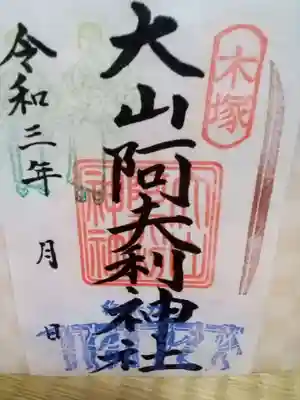 木塚
大山阿夫利神社
令和三年 月 日